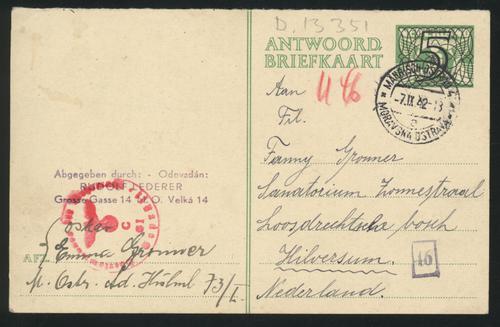 D. 13 351
ANTWOORD
BRIEFKAART
5
MÄHRISCH OSTRAU
-7.IX.42-18
MORAVSKÁ OSTRAVA
Aan
Frl.
Fanny Gronner
Sanatorium Zonnestraal
Loosdrechtsche bosch
Hilversum.
Nederland.
16
Abgegeben durch: - Odevzdán:
RUDOLF LEDERER
Grosse Gasse 14 M. O. Velká 14
Oskar
AFZ.
Emma Gronner
M. Ostr. Ad. Hitml 73/I.